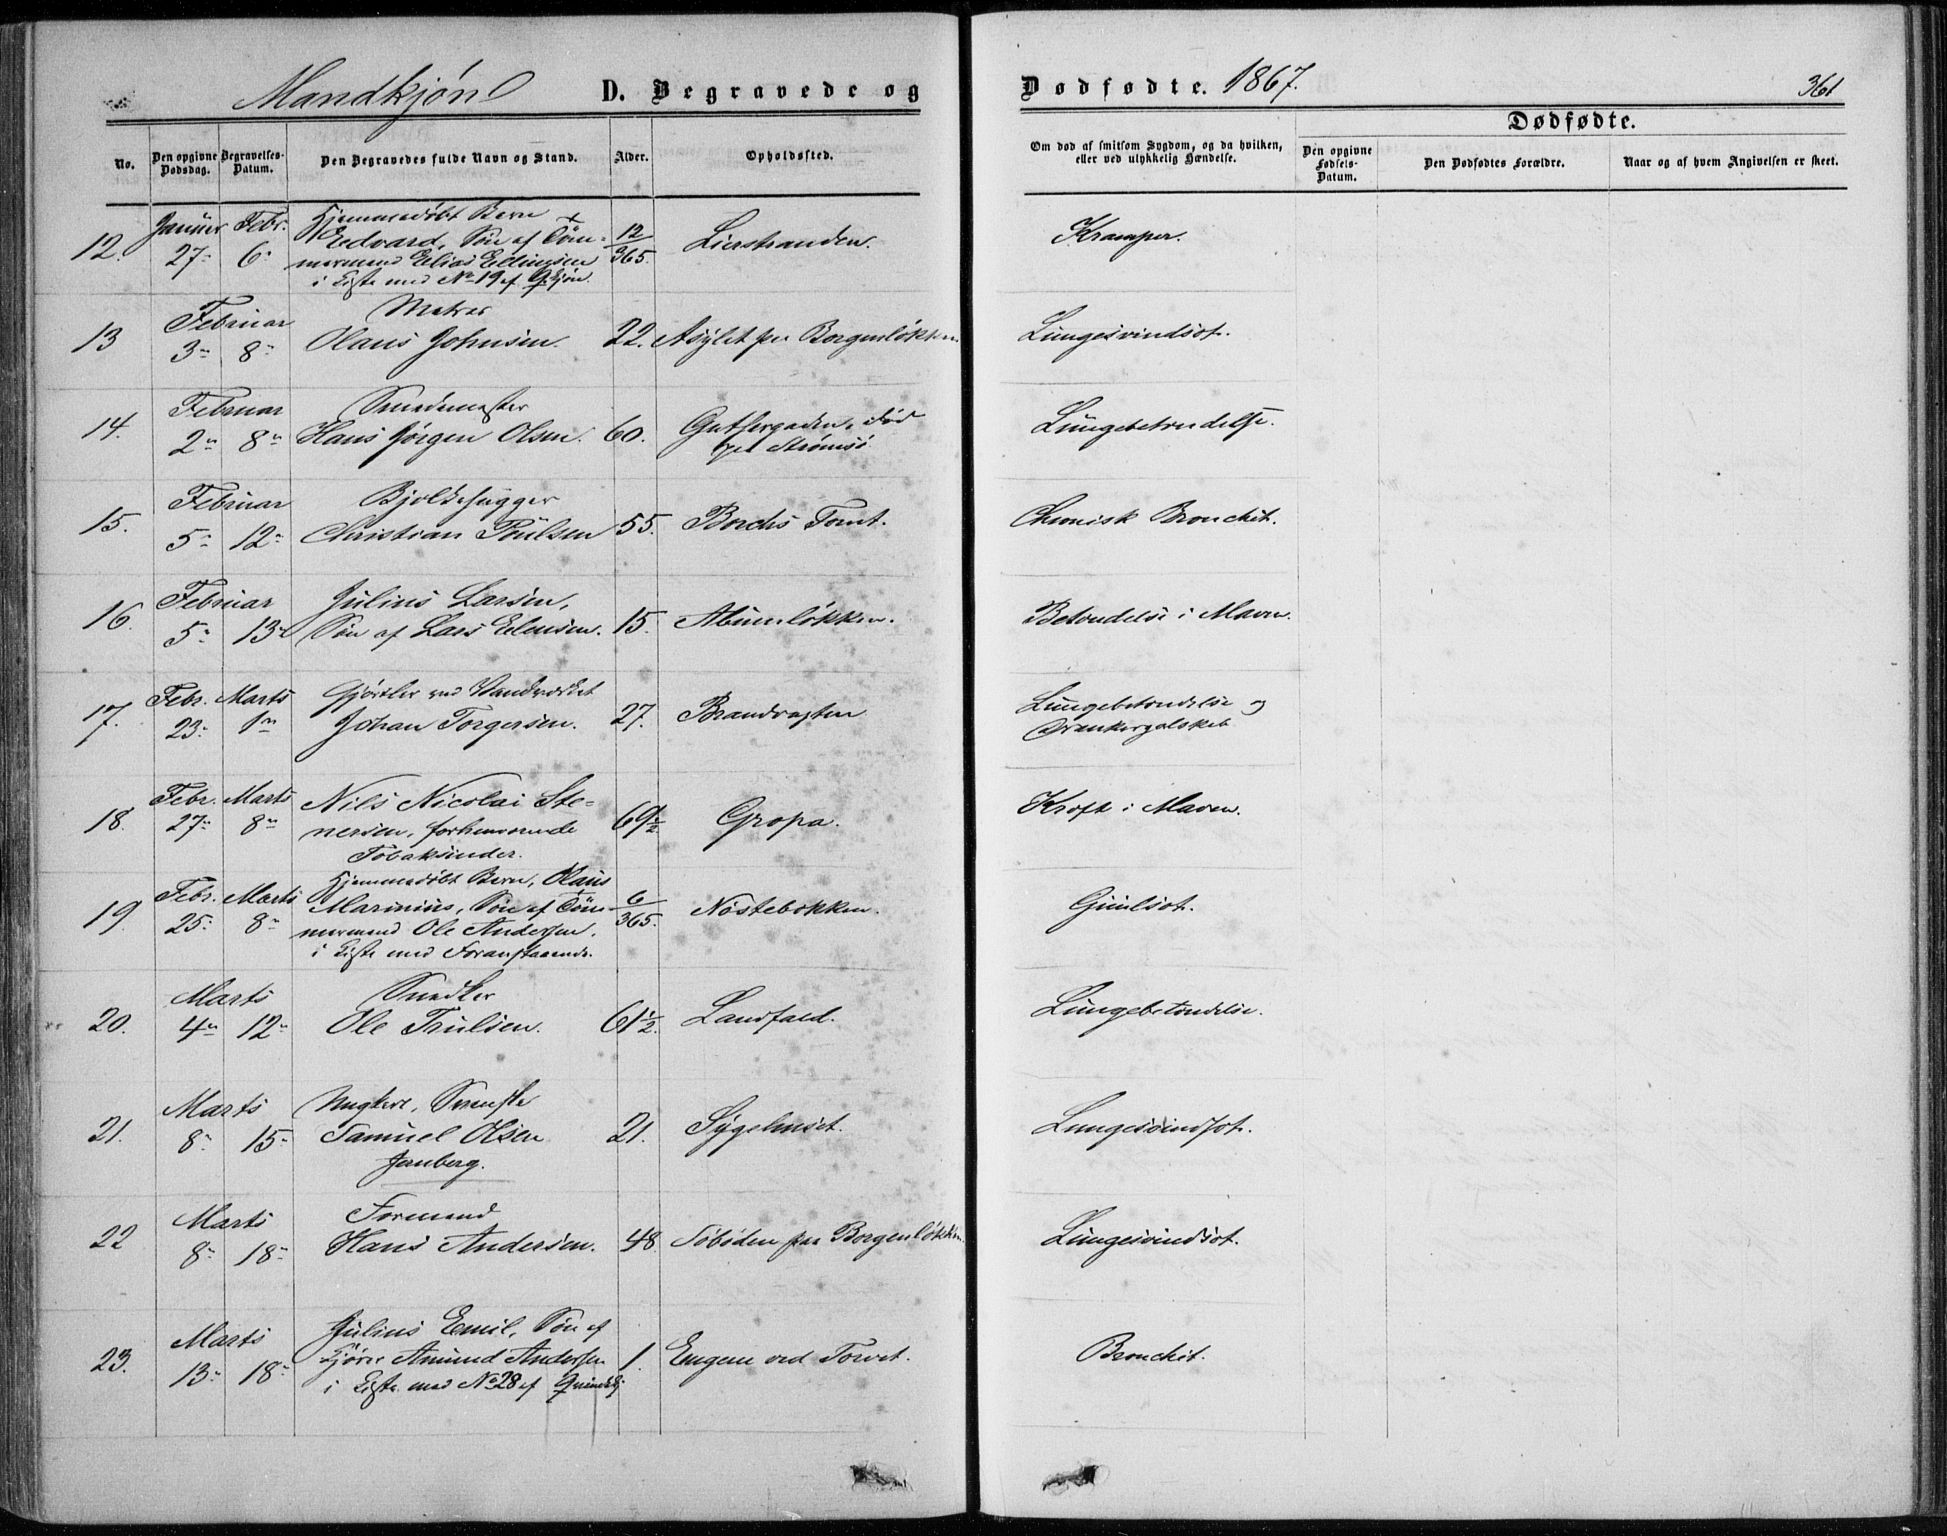 Mandkjøn D. Begravede og Dødfødte. 1867. 361
Dødfødte.
No. Den opgivne Dødsdag. Begravelses-Datum. Den Begravedes fulde Navn og Stand. Alder. Opholdssted. Om død af smitsom Sygdom, og da hvilken, eller ved ulykkelig Hændelse. Den opgivne Fødsels-Datum. Den Dødfødtes Forældre. Naar og af hvem Angivelsen er skeet.
Hjemmedøbt Barn
Januer Febr. Edvard, Søn af Tøm- 12
12. 27 6 mermand Elias Ellingsen 365. Lierstranden. Kramper.
i Kiste med No 19 af Qkjøn.
Februar Matros
13 3 8 Olaus Johnsen. 22. Asylet paa Borgenløkken Lungesvindsot.
Februar Smedemester
14. 2 8 Hans Jørgen Olsen. 60. død
paa Strømsø Lungebetændelse.
Februar Bjelkehugger
15. 5 12 Christian Poulsen 55. Borchs Tomt. Chronisk Bronchit.
Februar Julius Larsen,
16. 5 13 Søn af Lars Ellensen. 15. Betændelse i Maven.
Febr. Marts Gjørtler ved Vandværket
17. 23 1 Johan Torgersen. 27. Brandvagten Lungebetændelse og
Drankergalskab
Febr. Marts Nils Nicolai Ste-
18. 27 8 nersen, forhenværende 69½ Gropa. Kræft i Maven.
Tobaksspinder.
Hjemmedøbt Barn, Olaus
Febr. Marts Marinius, Søn af Tøm- 6
19. 25 8 mermand Ole Andersen. 365. Nøstebakken. Guulsot.
i Kiste med Foranstaaende.
Marts Snedker
20. 4 12 Ole Trulsen. 61½. Landfald. Lungebetændelse.
Marts Ungkarl, Svenske
21. 8 15 Samuel Olsen 21. Sygehuset. Lungesvindsot.
Jernberg.
Marts Formand
22 8 18 Hans Andersen. 48. Søboden paa Borgenløkken. Lungesvindsot.
Marts Julius Emil, Søn af
23. 13 18 Kjører Amund Andersen 1. Engene ved Torvet. Bronchit.
i Kiste med No 28 af Qvindekj